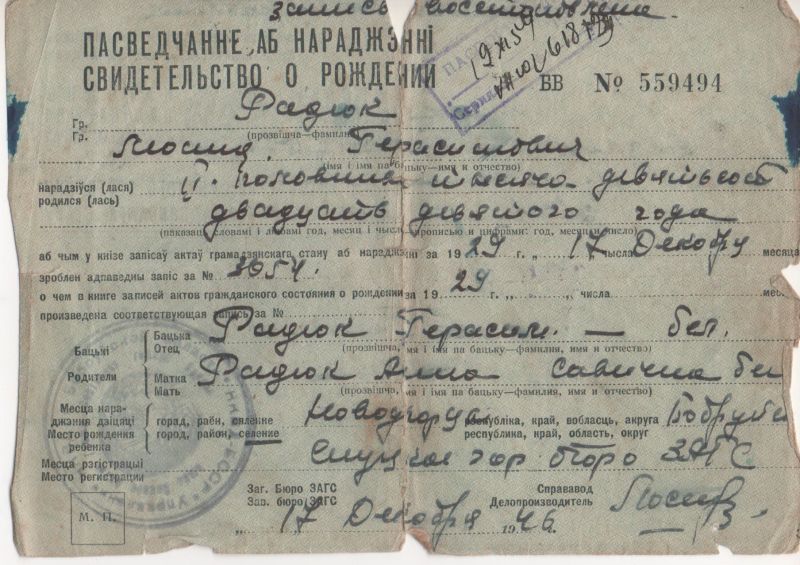 запись восстановлена.
ПАСВЕДЧАННЕ АБ НАРАДЖЭННІ
СВИДЕТЕЛЬСТВО О РОЖДЕНИИ
БВ № 559494
Гр. Радюк
Гр. (прозвішча—фамилия)
Герасимович
(імя і імя па бацьку—имя и отчество)
нарадзіўся (лася) тысяча девятьсот
родился (лась) двадцать девятого года
(паказаць словамі і лічбамі год, месяц і чысло—прописью и цифрами: год, месяц и число)
аб чым у кнізе запісаў актаў грамадзянскага стану аб нараджэнні за 1929 г. „17„ числа Декабру месяца
зроблен адпаведны запіс за № 3054.
о чем в книге записей актов гражданского состояния о рождении за 1929 г. „ „ числа мес
произведена соответствующая запись за №
Бацькі Бацька Радюк Герасим — бел.
Отец (прозвішча, імя і імя па бацьку—фамилия, имя и отчество)
Родители Матка Радюк Анна Савична бел
Мать (прозвішча, імя і імя па бацьку—фамилия, имя и отчество)
Месца нараджэння дзіцяці горад, раён, селение рэспубліка, край, вобласць, акруга Бобруйс
Место рождения ребенка город, район, селение республика, край, область, округ
Месца рэгістрацыі Слуцкое гор бюро ЗАГС
Место регистрации
Заг. Бюро ЗАГС Справавод
Зав. бюро ЗАГС Делопроизводитель
М. П. „17„ Декабря 1946 г.